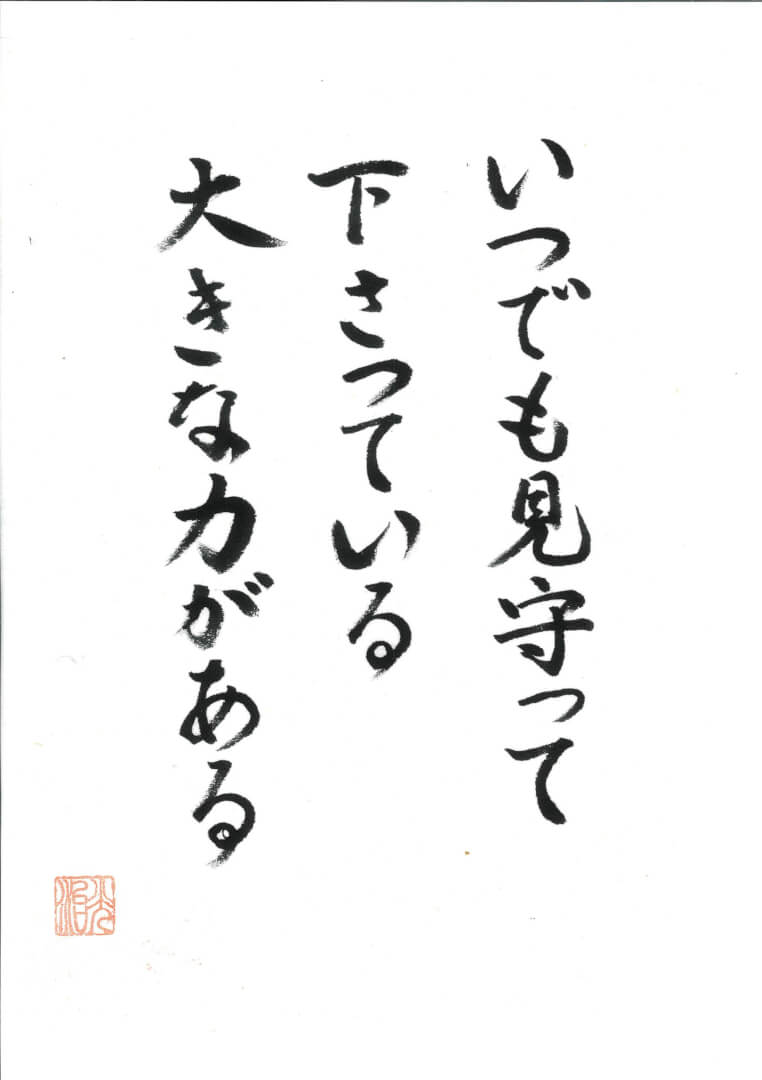 いつでも見守って
下さっている
大きな力がある